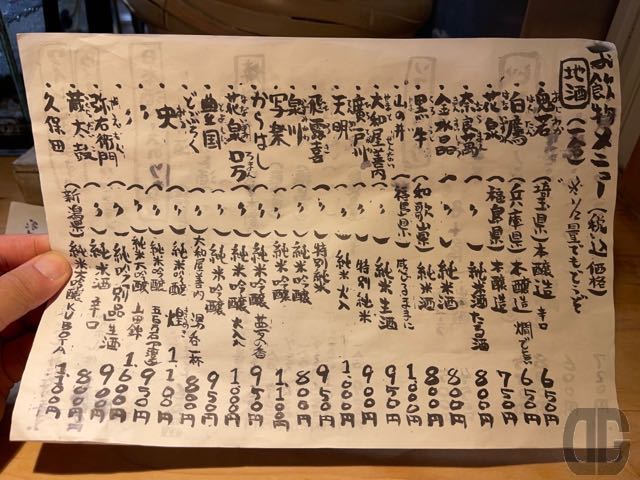 お飲物メニュー（税込価格）
地酒（一合）※1/2量でもどうぞ
・鬼若（埼玉県）本醸造 辛口 650円
・白鷹（兵庫県）本醸造 燗で 650円
・花泉（福島県）本醸造 750円
・奈良萬（〃）純米酒 800円
・金水晶（〃）純米酒 800円
・黒牛（和歌山県）純米酒 800円
・山の井（福島県）感じるままに 1,000円
・大和屋善内（〃）純米生酒 950円
・廣戸川（〃）特別純米 900円
・天明（〃）純米火入 1,000円
・飛露喜（〃）特別純米 950円
・泉川（〃）純米吟醸 800円
・写楽（〃）純米吟醸 1,100円
・からはし（〃）純米吟醸 夢の香 950円
・花泉 ロ万（〃）純米吟醸 一回火入 1,000円
・豊国（〃）純米吟醸 950円
・どぶろく（〃）大和屋善内 800円
・央（〃）純米吟醸 煌 1,100円
・〃（〃）純米吟醸 950円
・〃（〃）純米大吟醸 山田錦 1,600円
・弥右衛門（〃）純米酒 辛口 900円
・蔵太鼓（〃）純米吟醸 800円
・久保田（新潟県）純米大吟醸 KUBOTA 1,100円